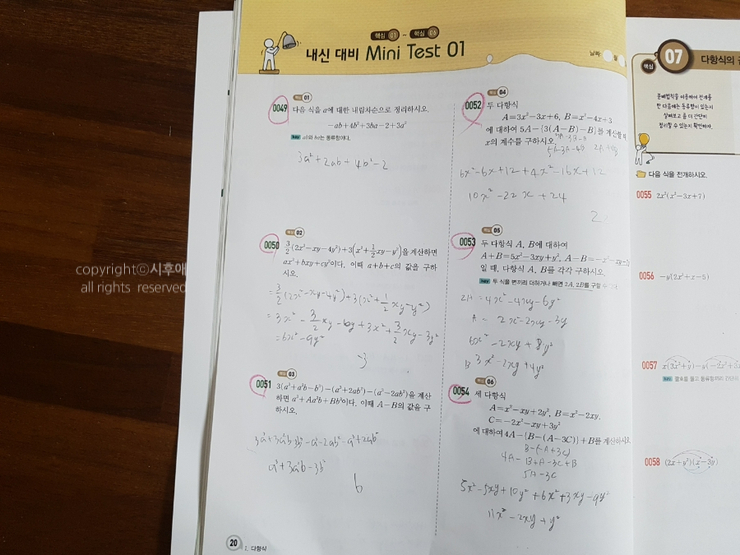 핵심 01 ~ 핵심 06
내신 대비 Mini Test 01
날짜:
핵심 01
0049 다음 식을 a에 대한 내림차순으로 정리하시오.
-ab+4b²+3ba-2+3a²
ab와 ba는 동류항이다.
3a²+2ab+4b²-2
핵심 02
0050
3/2(2x²-xy-4y²)+3(x²+1/2xy-y²)을 계산하면
ax²+bxy+cy²이다. 이때 a+b+c의 값을 구하
시오.
3/2(2x²-xy-4y²)+3(x²+1/2xy-y²)
=3x²-3/2xy-6y²+3x²+3/2xy-3y²
=6x²-9y²
-3
핵심 03
0051 3(a³+a²b-b³)-(a³+2ab²)-(a³-2ab²)을 계산
하면 a³+Aa²b+Bb³이다. 이때 A-B의 값을 구
하시오.
a³+3a²b-3b³
6
20 I. 다항식
핵심 04
0052 두 다항식
A=3x²-3x+6, B=x²-4x+3
에 대하여 5A-{3(A-B)-B}를 계산할
x의 계수를 구하시오.
6x²-6x+12+4x²-16x+12
10x²-22x+24
핵심 05
0053 두 다항식 A, B에 대하여
A+B=5x²-3xy+y², A-B=-x²-xy-5
일 때, 다항식 A, B를 각각 구하시오.
두 식을 변끼리 더하거나 빼면 2A, 2B를 구할 수
2A=4x²-4xy-6y²
A=2x²-2xy-3y
6x²-2xy+8y²
B 3x²-2xy+4y²
핵심 06
0054 세 다항식
A=x²-xy+2y², B=x²-2xy,
C=-2x²-xy+3y²
에 대하여 4A-{B-(A-3C)}+B를 계산하시오.
B-A+3C
4A-B+A-3C+B
5A-3C
5x²-5xy+10y²+6x²+3xy-9y²
11x²-2xy+y²
핵심 07 다항식의
분배법칙을 이용하여 전개를
한 다음에는 동류항이 있는지
살펴보고 좀 더 간단히
정리할 수 있는지 확인하자.
다음 식을 전개하시오.
0055 2x²(x²-3x+7)
0056 -y(2x²+x-5)
0057
0058 (2x+y²)(x²-3y)
copyrightⓒ시후애
all rights reserved